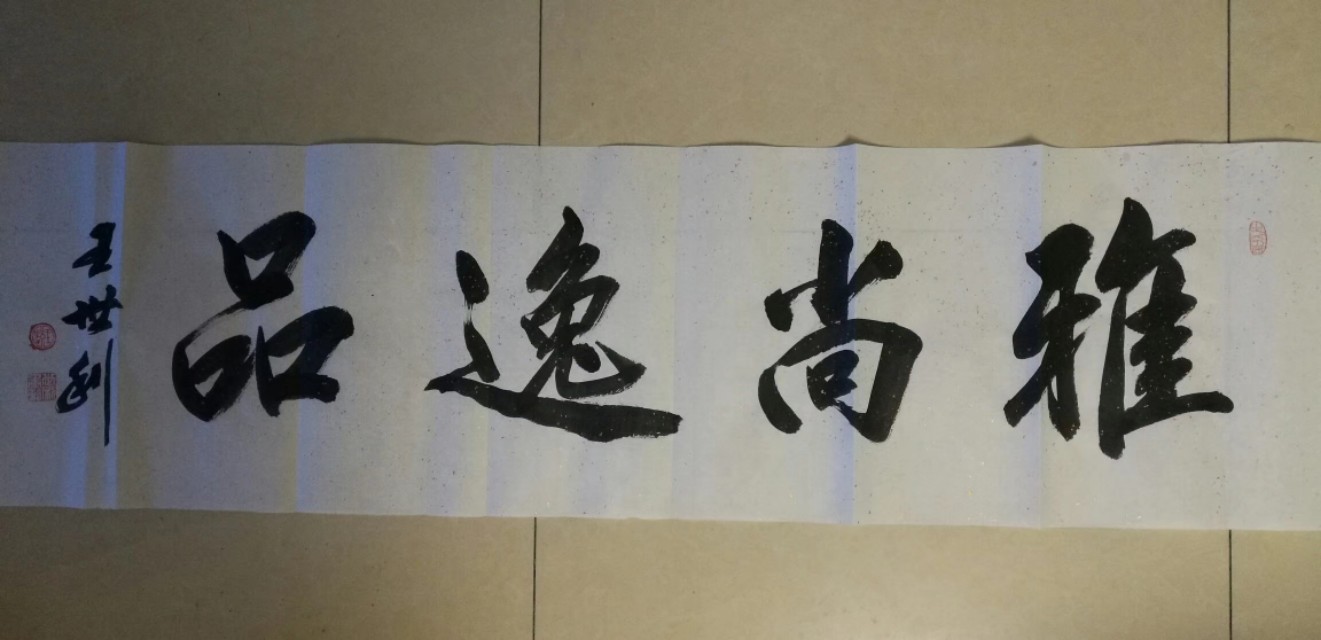 雅尚逸品
王世利